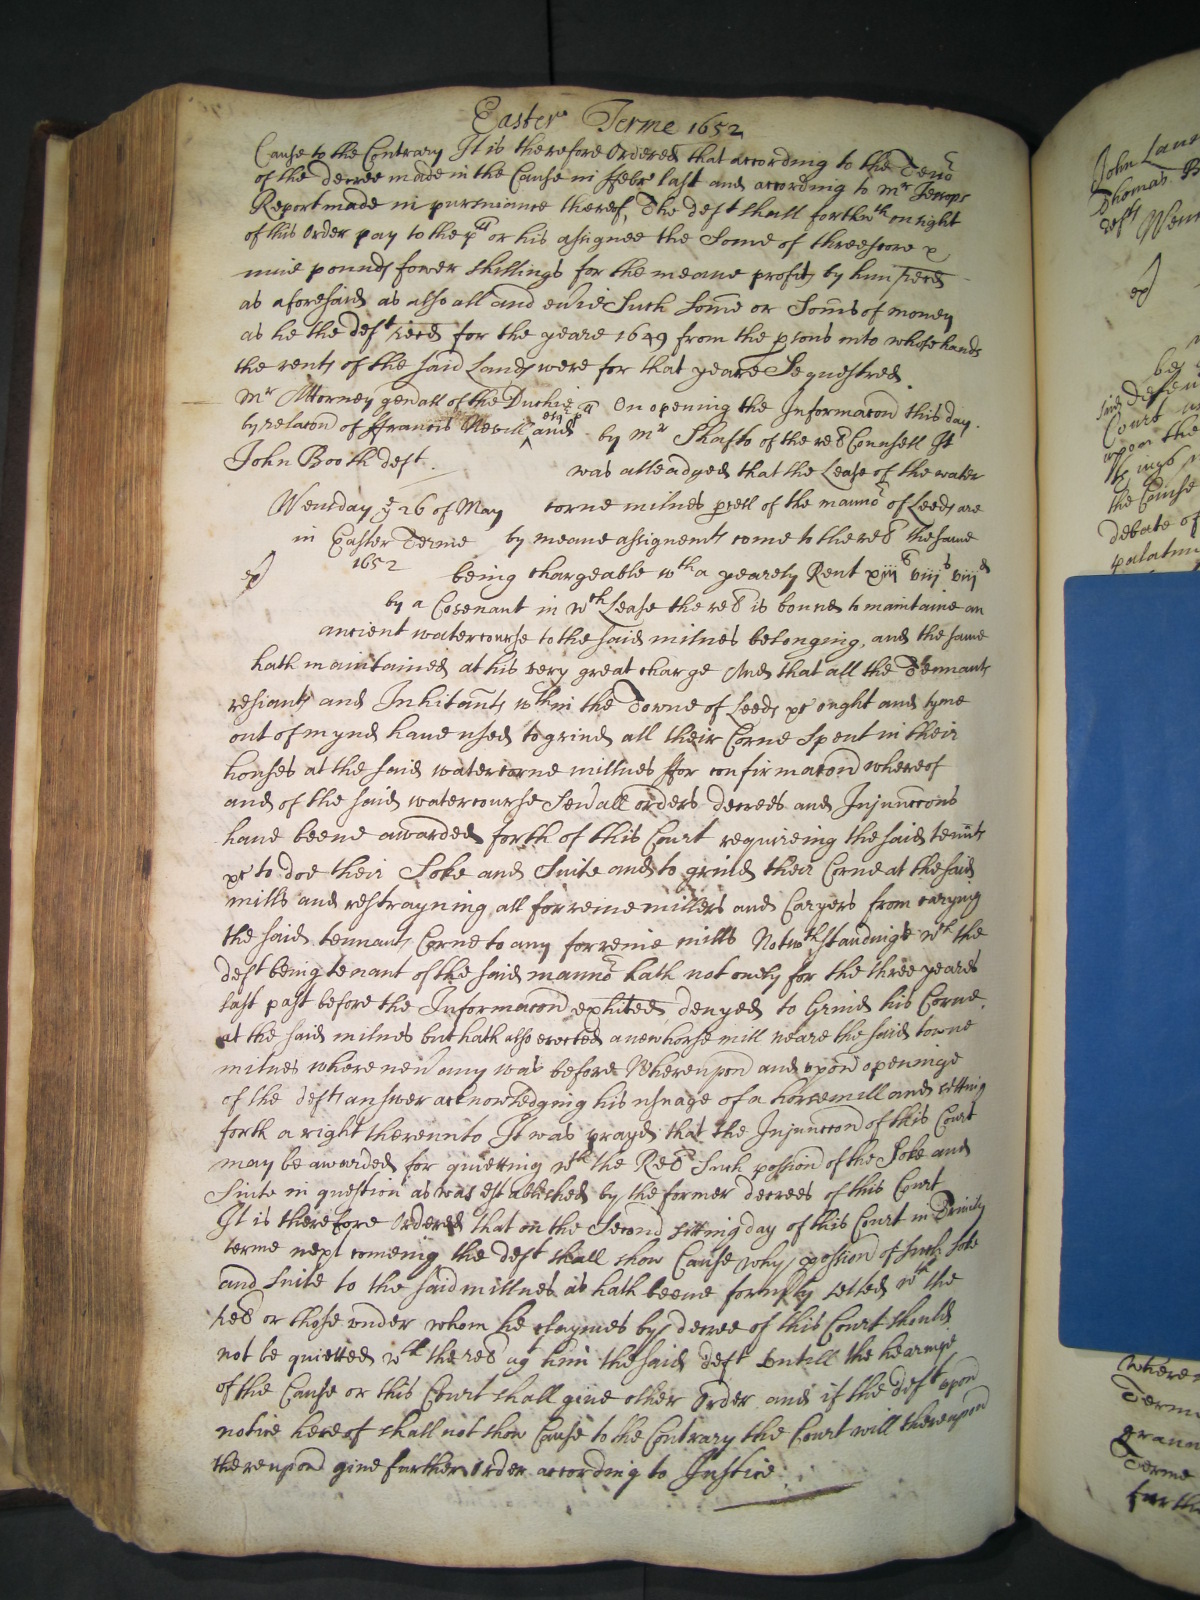 Easter Terme 1652
Cause to the Contrary It is therefore Ordered that according to the Teno
of the decree made in the Cause in ffebr last and according to Mr Jessops
Report made in pursuiance thereof, The deft shall forthwth on sight
of this Order pay to the plt or his assignee the Some of threescore &
nine pounds fower shillings for the meane profitts by him recd
as aforesaid as also all and evrie Such Some or Soms of money
as he the deft recd for the yeare 1649 from the psons into whose hands
the rents of the said Lands were for that yeare Sequestred.
Mr Attorney genall of the Duchie
by relacon of ffrancis Nevill esqr plt and
John Booth deft.
On opening the Informacon this day
by Mr Shafto of the rels Counsell It
was alleadged that the Lease of the water
Wensday ye 26 of May
corne milnes pcell of the manno of Leeds are
in Easter Terme
by meane assignemts come to the rel The same
1652
being chargeable wth a yearely Rent xiij viijs viijd
by a Covenant in wch Lease the rel is bound to maintaine an
ancient watercourse to the said milnes belonging, and the same
hath maintained at his very great charge And that all the Tennants
resiants and Inhitants wthin the Towne of Leeds of ought and tyme
out of mynd have used to grind all their Corne Spent in their
houses at the said watercorne millnes ffor confirmacon whereof
and of the said watercourse Sevall orders decrees and Injunccons
have beene awarded forth of this Court requireing the said tennts
to doe their Soke and Suite and to grind their Corne at the said
mills and restrayning all forreine millers and Caryers from carying
the said tennants Corne to any forreine mills Notwthstandinge wch the
deft being tenant of the said manno hath not onely for the three yeares
last past before the Informacon exhited denyed to Grind his Corne
at the said milnes but hath also erected a new horse mill neare the said towne
milnes where nevr any was before Whereupon and upon openinge
of the defts answer acknowledging his usuage of a horsemill and setting
forth a right thereunto It was prayd that the Injunccon of this Court
may be awarded for quietting wth the Rel Such possion of the Soke and
Suite in question as was established by the former decrees of this Court
It is therefore Ordered that on the Second sitting day of this Court in Trinity
terme next comeing the deft shall show Cause why possion of such Soke
and Suite to the said millnes as hath beene formly setled wth the
rel or those under whom he claymes by decree of this Court should
not be quietted wth the rel agt him the said deft untill the hearinge
of the Cause or this Court shall give other Order and if the deft upon
notice hereof shall not show Cause to the Contrary the Court will thereupon
thereupon give further Order according to Justice
John Lane
Thomas B
defts Wens